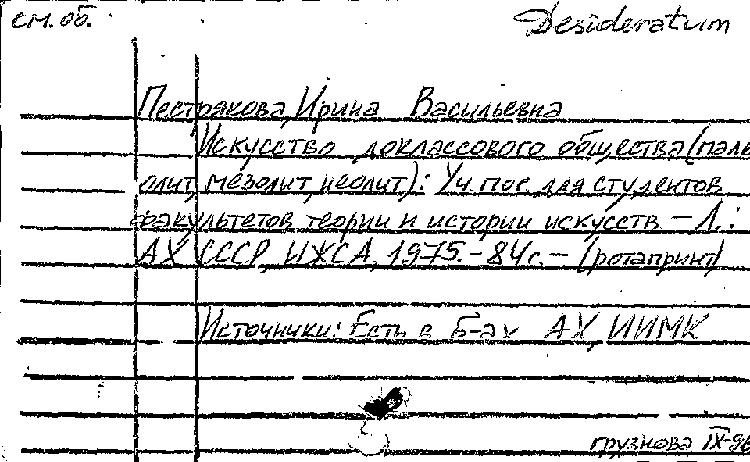 см. об.
Desideratum
Пестрякова, Ирина Васильевна
Искусство доклассового общества (пале
олит, мезолит, неолит): Уч. пос. для студентов
факультетов теории и истории искусств – Л.:
АХ СССР, ИЖСА, 1975. – 84с. – (ротапринт)
Источники: Есть в б-ах АХ, ИИМК
грузнова IX-96